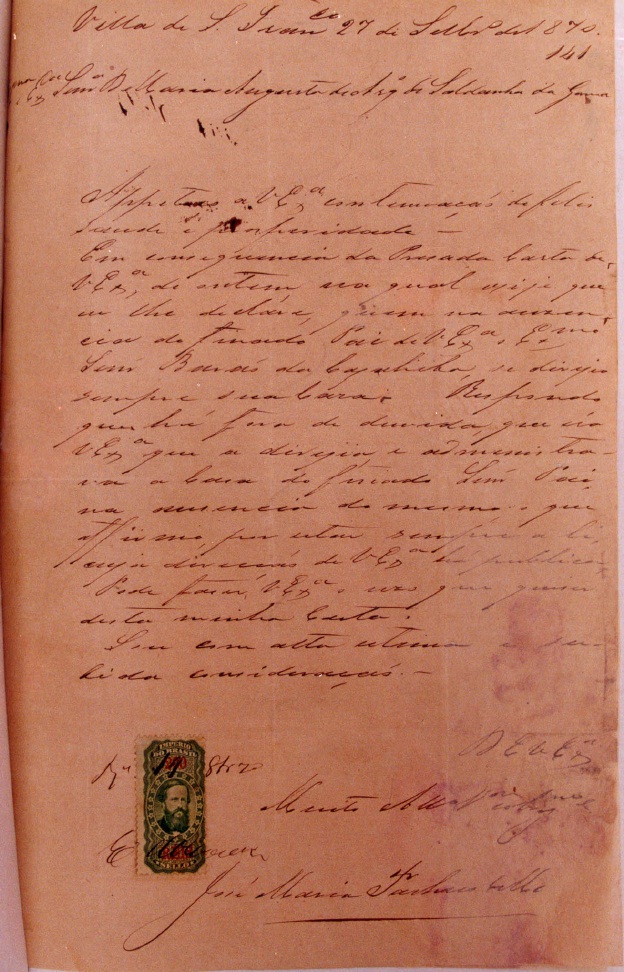 Villa de S. Fran.co 27 de Setbr.o de 1870.
141
Snr.a D. Maria Augusta de de Saldanha da Gama
Appeteço a V Ex.a continuação de feliz
saude e prosperidade —
Em consequencia da Presada Carta de
V Ex.a, de ontem na qual exije que
eu lhe declare, quem na auzen-
cia do finado Pai de V. Ex.a, o Ex.mo
Snr. Barão da Cajahiba, se dirijia
sempre sua Caza; Respondo
que hé fora de duvida, que éra
V Ex.a que a dirijia e administra-
va a Caza do finado Snr. Pai
na auzencia do mesmo, o que
affirmo por estar sempre a li,
cuja direcção de V Ex.a hé publica
Pode fazer V. Ex.a o uso que quizer
desta minha Carta.
Sou com alta estima e su-
bida consideração. —
D E V Ex.a
IMPERIO
DO BRASIL
200
Muito
José Maria